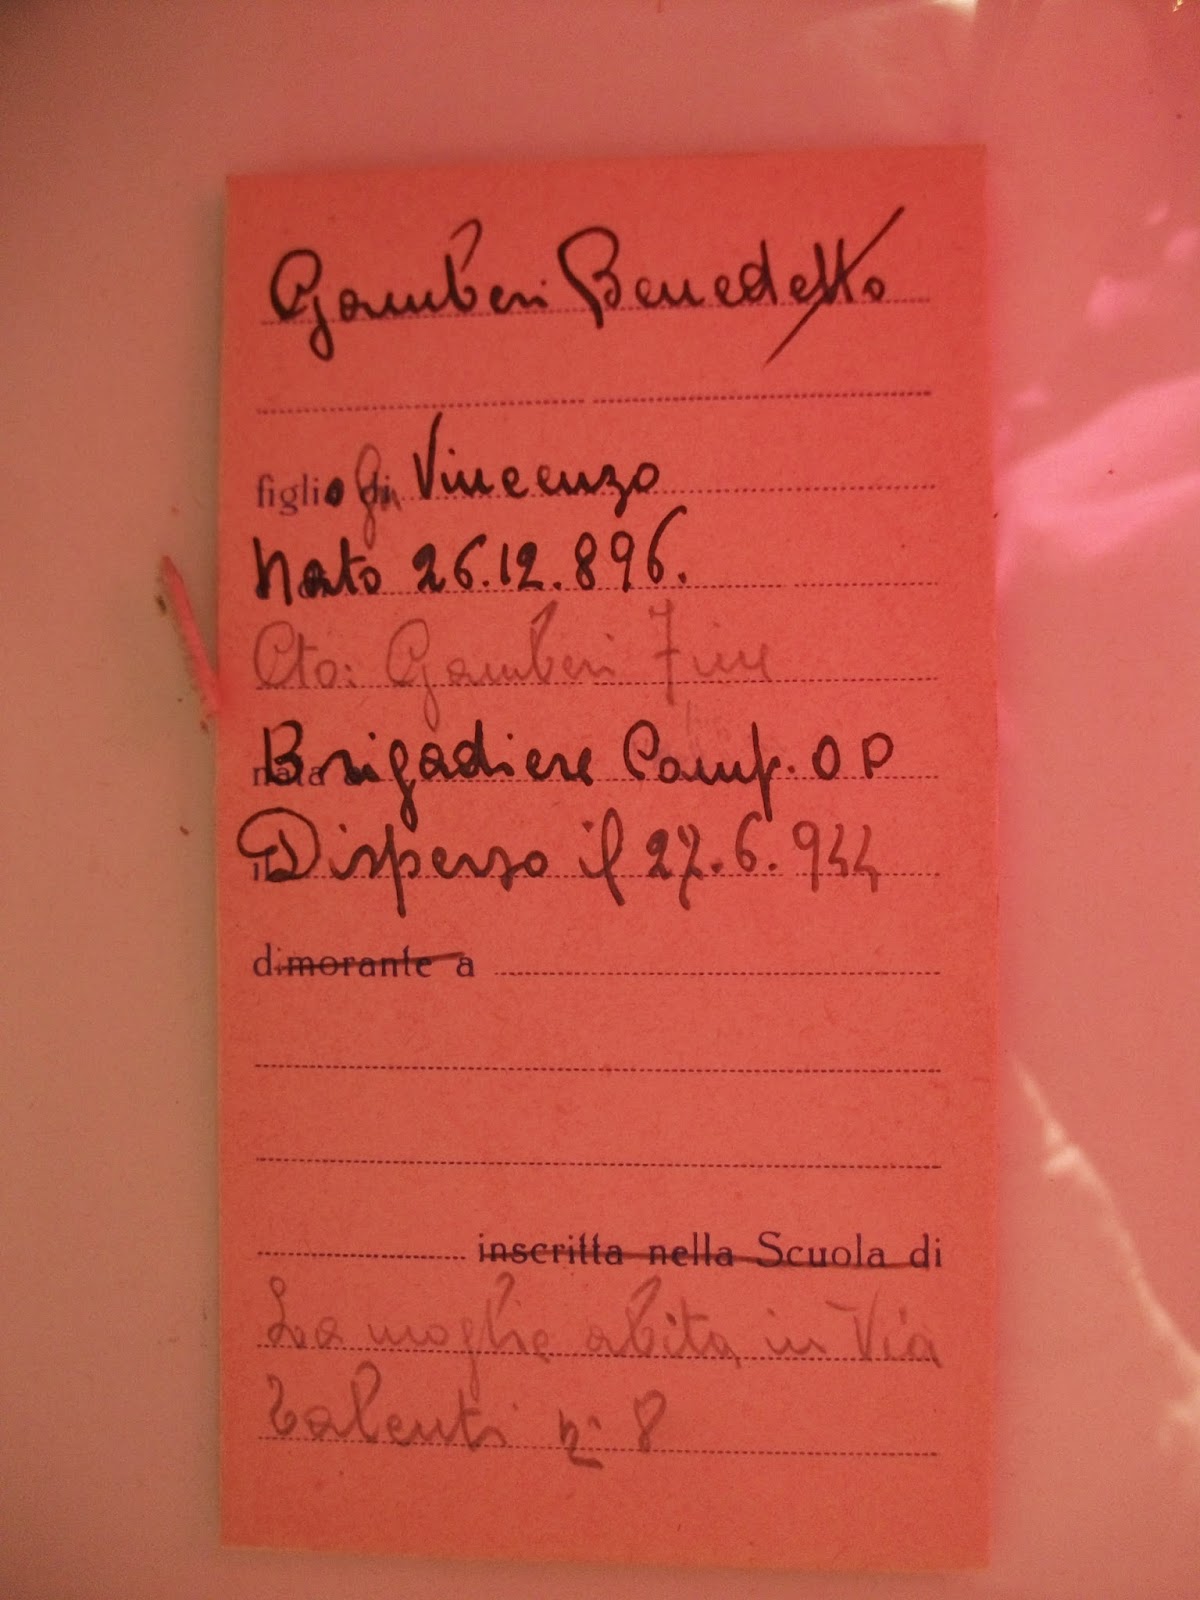 Gamberi Benedetto
figlio di fu Vincenzo
Nato 26.12.896.
Cto: Gamberi
nata a Brigadiere Comp. O P
Disperso il 27.6.944
dimorante a
inscritta nella Scuola di
La moglie abita in Via
Talenti n. 8